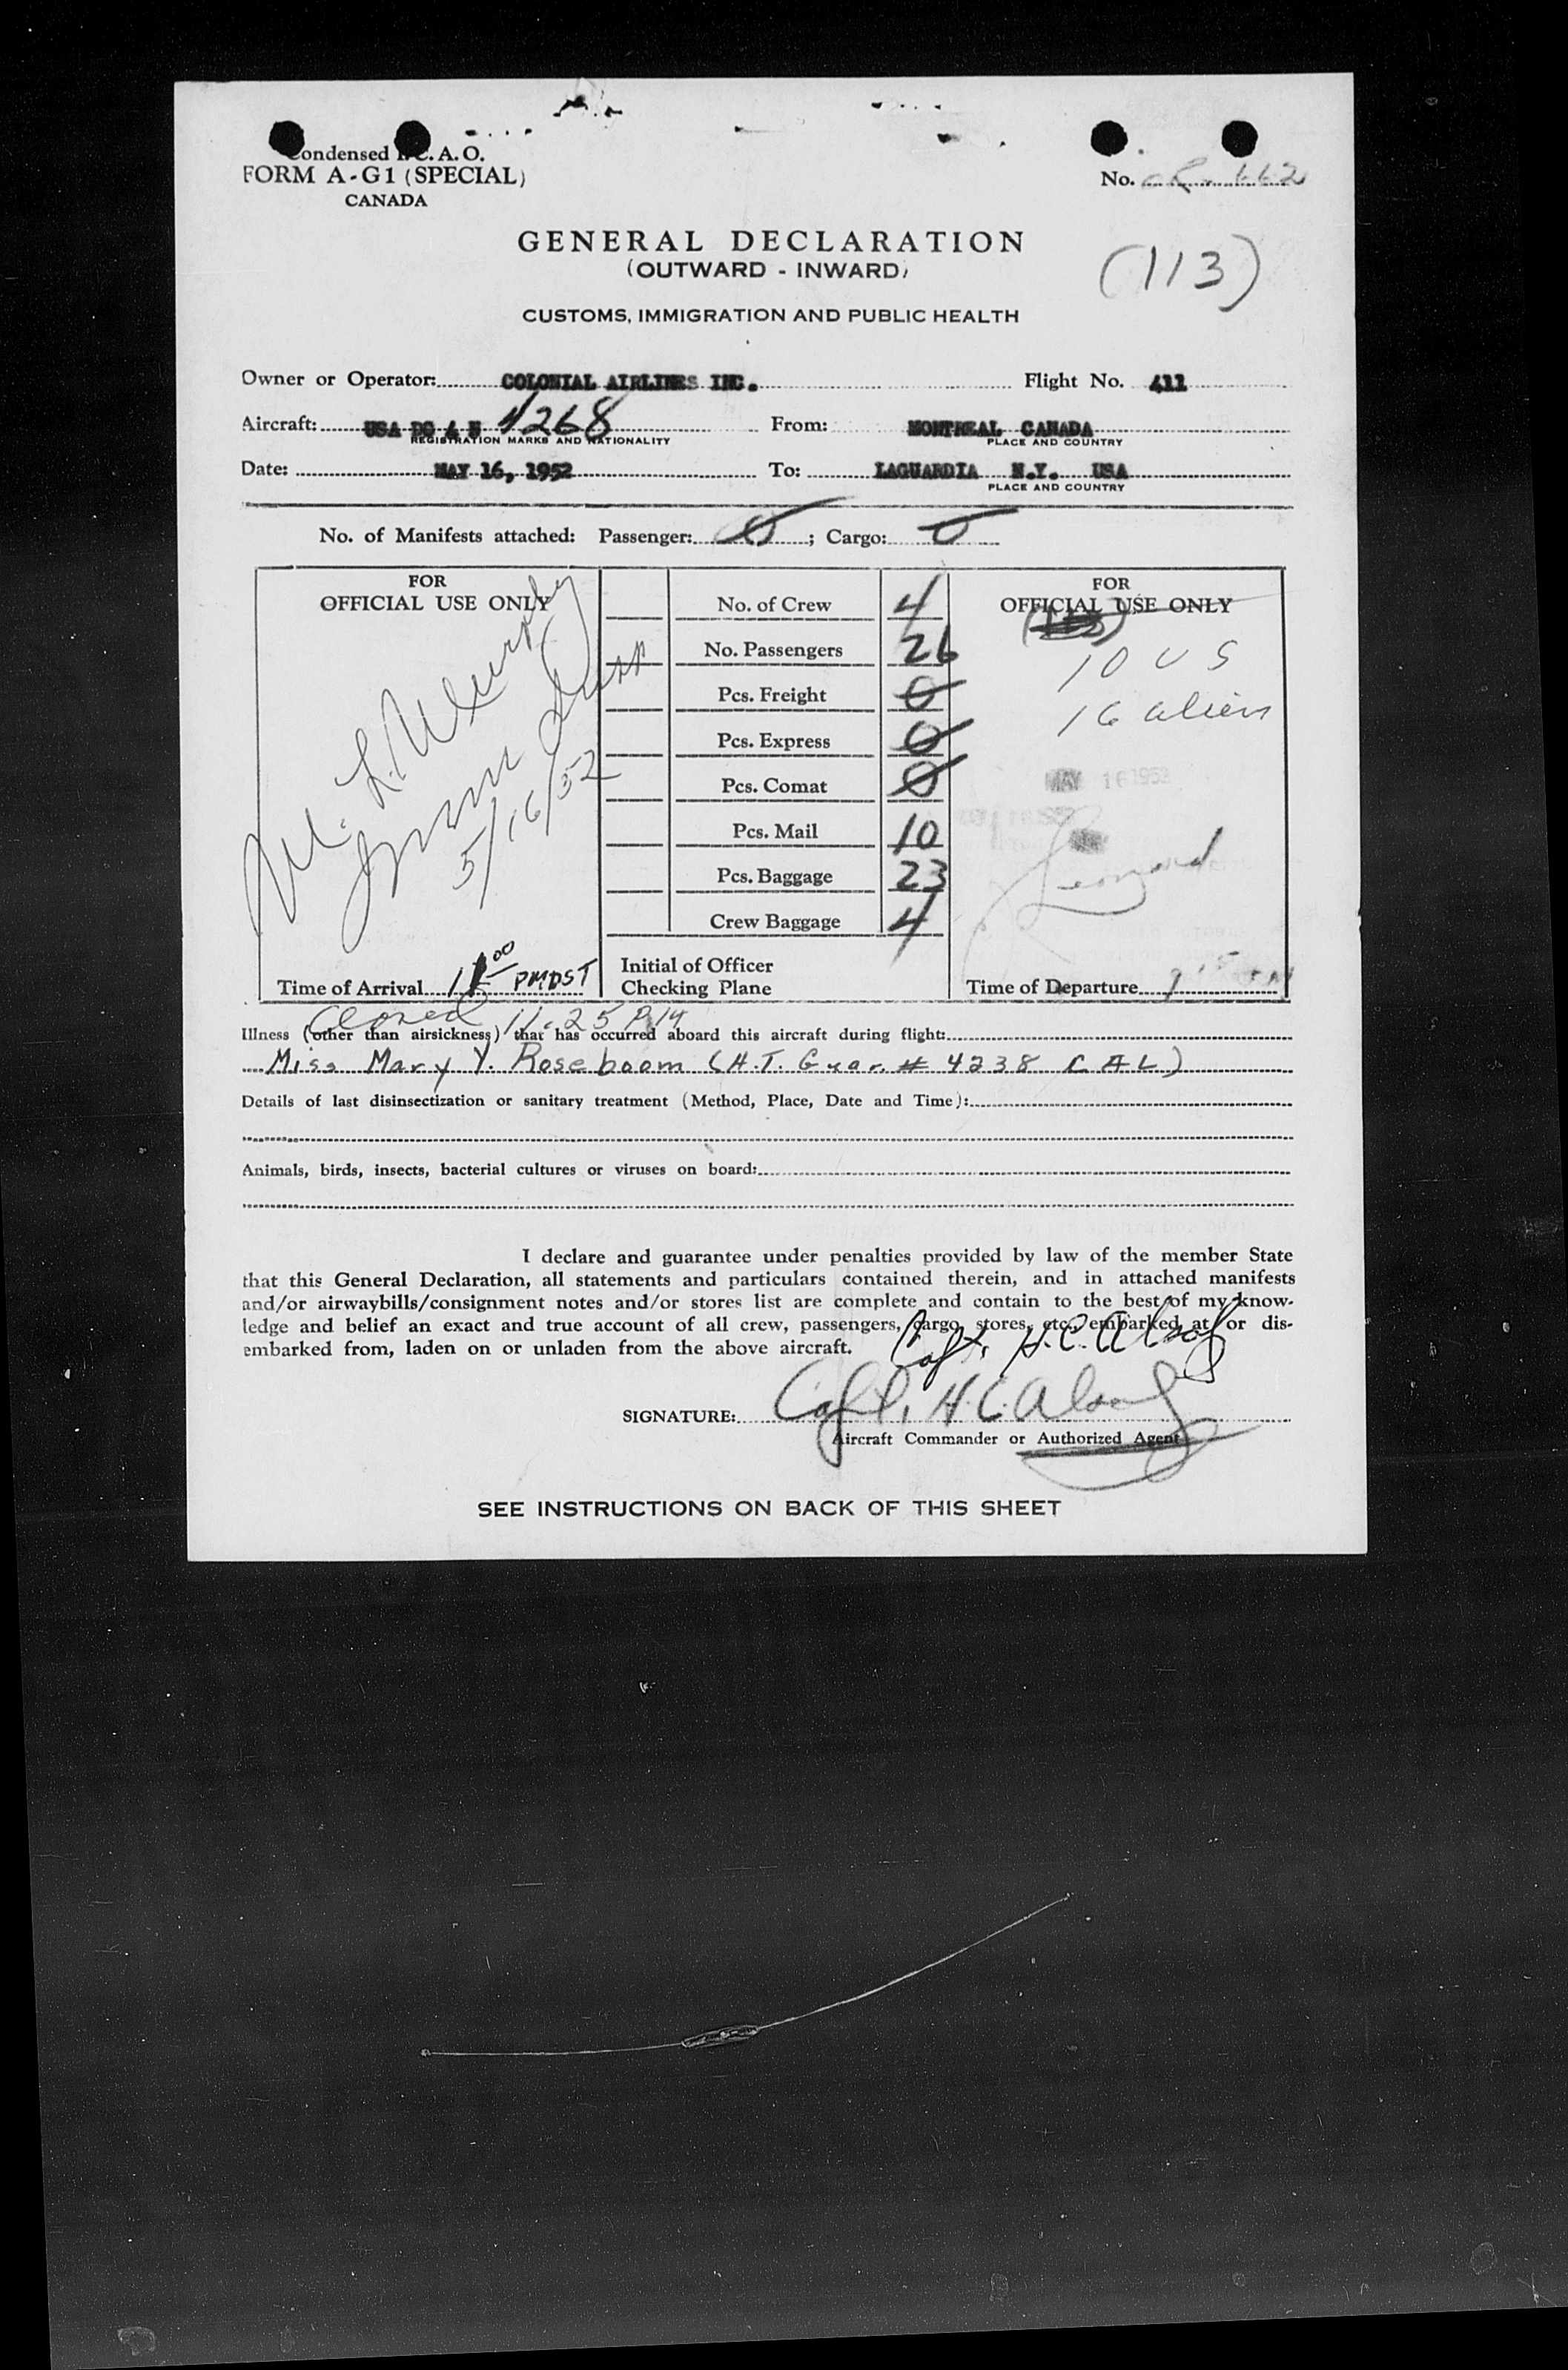 Condensed I.C.A.O.
FORM A-G1 (SPECIAL)
CANADA
No.
GENERAL DECLARATION
(OUTWARD - INWARD)
(113)
CUSTOMS, IMMIGRATION AND PUBLIC HEALTH
Owner or Operator: COLONIAL AIRLINES INC. Flight No. 411
Aircraft: USA DC 4 N 4268 From: MONTREAL CANADA
REGISTRATION MARKS AND NATIONALITY PLACE AND COUNTRY
Date: MAY 16, 1952 To: LAGUARDIA N.Y. USA
PLACE AND COUNTRY
No. of Manifests attached: Passenger: 0; Cargo: 0
FOR
OFFICIAL USE ONLY
M. L. Murphy
5/16/52
Time of Arrival 11 00 PMDST
No. of Crew 4
No. Passengers 26
Pcs. Freight 0
Pcs. Express 0
Pcs. Comat 0
Pcs. Mail 10
Pcs. Baggage 23
Crew Baggage 4
Initial of Officer
Checking Plane
FOR
OFFICIAL USE ONLY
10 US
16 alien
MAY 16 1952
Leonard
Time of Departure
Closed 11:25 PM
Illness (other than airsickness) that has occurred aboard this aircraft during flight:
Miss Mary Y. Roseboom (H.T. Guar. # 4238 CAL)
Details of last disinsectization or sanitary treatment (Method, Place, Date and Time):
Animals, birds, insects, bacterial cultures or viruses on board:
I declare and guarantee under penalties provided by law of the member State
that this General Declaration, all statements and particulars contained therein, and in attached manifests
and/or airwaybills/consignment notes and/or stores list are complete and contain to the best of my know-
ledge and belief an exact and true account of all crew, passengers, cargo, stores, etc., embarked at or dis-
embarked from, laden on or unladen from the above aircraft.
Capt. H.C. Alsop
SIGNATURE: Capt. H.C. Alsop
Aircraft Commander or Authorized Agent
SEE INSTRUCTIONS ON BACK OF THIS SHEET